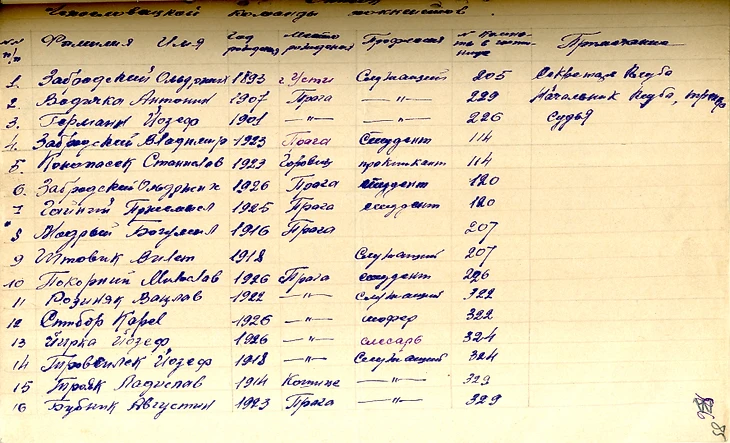 Чехословацкой команды хоккеистов.
№№ п/п Фамилия Имя Год рождения Место рождения Профессия № комна- ты в гости- нице Примечание
1. Забродский Ольдржих 1893 г Усти Служащий 205 Секретарь Клуба
2. Водичка Антонин 1907 Прага —"— 229 Начальник клуба, тренер
3. Герман Йозеф 1901 —"— —"— 226 Судья
4. Забродский Владимир 1923 Прага Студент 114
5. Конопасек Станислав 1923 Горовиц практикант 114
6. Забродский Ольдржих 1926 Прага студент 120
7 Гайный Пржемысл 1925 Прага студент 120
8 Модрый Богумил 1916 Прага 207
9 Штовик Вилет 1918 Служащий 207
10 Покорний Милослав 1926 Прага студент 226
11 Розиняк Вацлав 1922 —"— служащий 322
12 Стибор Карел 1926 —"— шофер 322
13 Йирка Йозеф 1926 —"— слесарь 324
14 Троусилек Йозеф 1918 —"— Служащий 324
15 Трояк Ладислав 1914 Кошице —"— 329
16 Бубник Августин 1923 Прага —"— 329
85